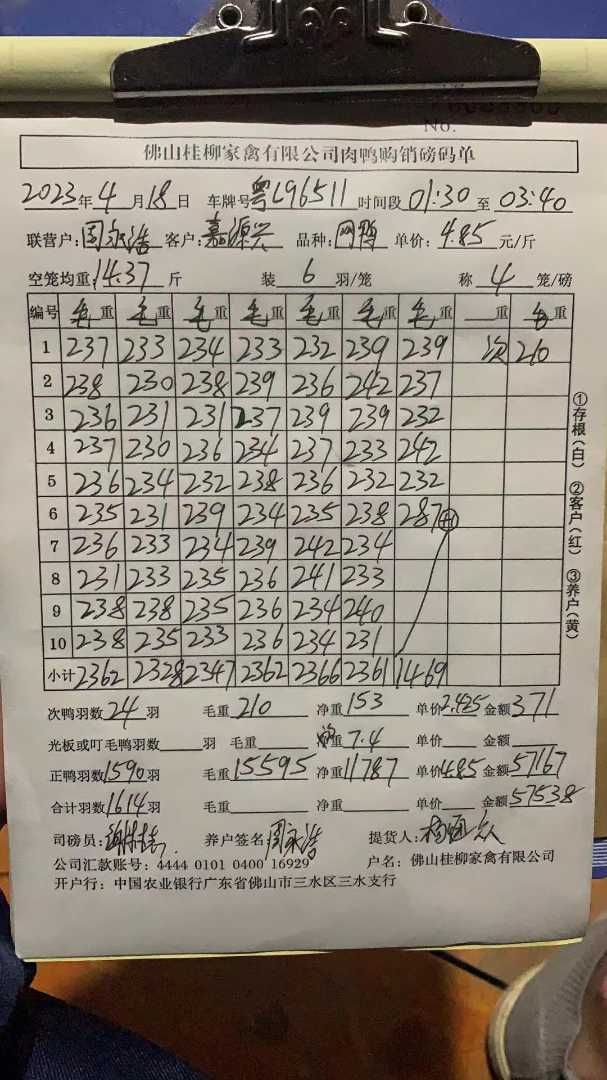 No.
佛山桂柳家禽有限公司肉鸭购销磅码单
2023年4月18日 车牌号粤L96511 时间段01:30至03:40
联营户:周永浩 客户:嘉源兴 品种: 单价:4.85元/斤
空笼均重:14.37斤 装6羽/笼 称4笼/磅
编号 毛重 毛重 毛重 毛重 毛重 毛重 毛重 重 毛重
1 237 233 234 233 232 239 239 次 210
2 238 230 238 239 236 242 237
3 236 231 231 237 239 239 232
4 237 230 236 234 237 233 242
5 236 234 232 238 236 232 232
6 235 231 239 234 235 238 287
7 236 233 234 239 242 234
8 231 233 235 236 241 233
9 238 238 235 236 234 240
10 238 235 233 236 234 231
小计 2362 2328 2347 2362 2366 2361 1469
次鸭羽数24羽 毛重210 净重153 单价2.425 金额371
光板或叮毛鸭羽数羽 毛重 净重7.4 单价 金额
正鸭羽数1590羽 毛重15595 净重11787 单价4.85 金额57167
合计羽数1614羽 毛重 净重 单价 金额57538
司磅员: 养户签名:周永浩 提货人:
公司汇款账号:4444 0101 0400 16929 户名:佛山桂柳家禽有限公司
开户行:中国农业银行广东省佛山市三水区三水支行
①存根(白) ②客户(红) ③养户(黄)